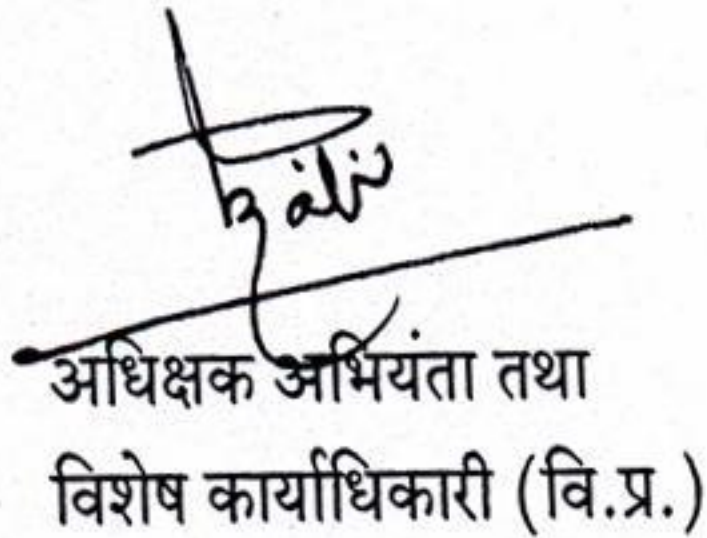 अधिक्षक अभियंता तथा
विशेष कार्याधिकारी (वि.प्र.)